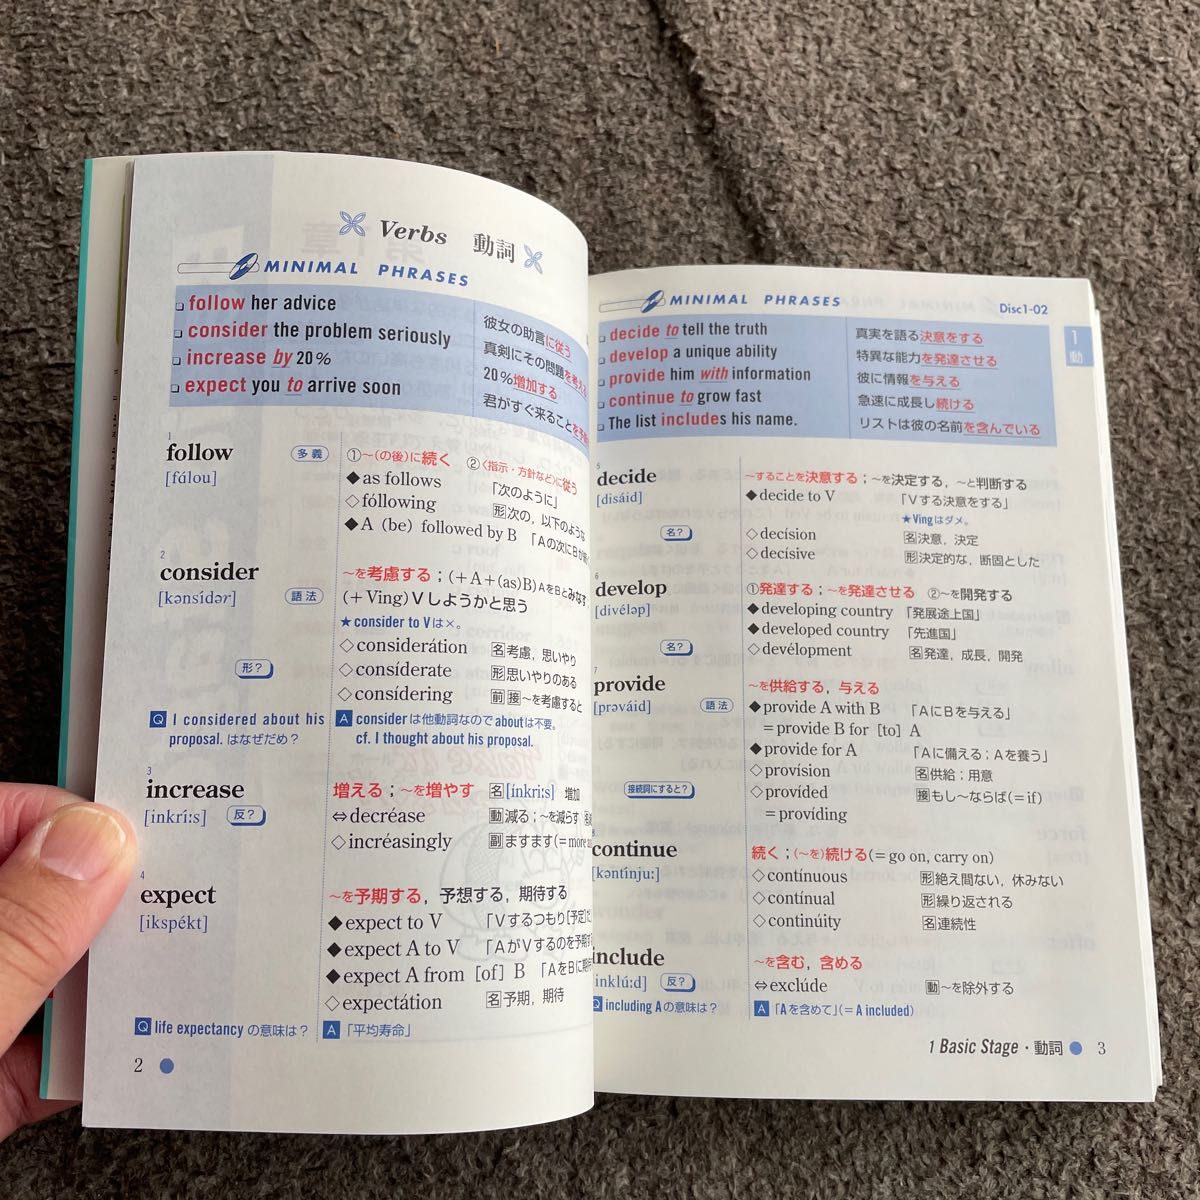 Verbs 動詞
MINIMAL PHRASES
follow her advice
consider the problem seriously
increase by 20%
expect you to arrive soon
彼女の助言に従う
真剣にその問題を考える
20%増加する
君がすぐ来ることを
1
follow
[fálou]
多義
①〜(の後)に続く ②〈指示・方針など〉に従う
◆as follows 「次のように」
◇fóllowing 形次の，以下のような
◆A (be) followed by B 「Aの次にBが
2
consider
[kənsídər]
語法
〜を考慮する；(+A+(as)B)AをBとみなす
(+Ving)Vしようかと思う
★consider to Vは×。
◇considerátion 名考慮，思いやり
形？
◇consíderate 形思いやりのある
◇consídering 前 接〜を考慮すると
Q I considered about his proposal. はなぜだめ？
A considerは他動詞なのでaboutは不要。
cf. I thought about his proposal.
3
increase
[inkríːs]
反？
増える；〜を増やす 名[ínkriːs] 増加
⇔decréase 動減る；〜を減らす
◇incréasingly 副ますます(=more
4
expect
[ikspékt]
〜を予期する，予想する，期待する
◆expect to V 「Vするつもり[予定]だ
◆expect A to V 「AがVするのを予期す
◆expect A from [of] B 「AをBに期待
◇expectátion 名予期，期待
Q life expectancy の意味は？
A 「平均寿命」
2
MINIMAL PHRASES
Disc1-02
decide to tell the truth
develop a unique ability
provide him with information
continue to grow fast
The list includes his name.
真実を語る決意をする
特異な能力を発達させる
彼に情報を与える
急速に成長し続ける
リストは彼の名前を含んでいる
1
動
5
decide
[disáid]
〜することを決意する；〜を決定する，〜と判断する
◆decide to V 「Vする決意をする」
★Vingはダメ。
名？
◇decísion 名決意，決定
◇decísive 形決定的な，断固とした
6
develop
[divéləp]
①発達する；〜を発達させる ②〜を開発する
◆developing country 「発展途上国」
◆developed country 「先進国」
名？
◇devélopment 名発達，成長，開発
7
provide
[prəváid]
語法
〜を供給する，与える
◆provide A with B 「AにBを与える」
= provide B for [to] A
◆provide for A 「Aに備える；Aを養う」
◇provísion 名供給；用意
接続詞にすると？
◇províded 接もし〜ならば(=if)
= províding
continue
[kəntínjuː]
続く；(〜を)続ける(=go on, carry on)
◇contínuous 形絶え間ない，休みない
◇contínual 形繰り返される
◇continúity 名連続性
include
[inklúːd]
反？
〜を含む，含める
⇔exclúde 動〜を除外する
Q including Aの意味は？
A 「Aを含めて」(=A included)
1 Basic Stage・動詞 3